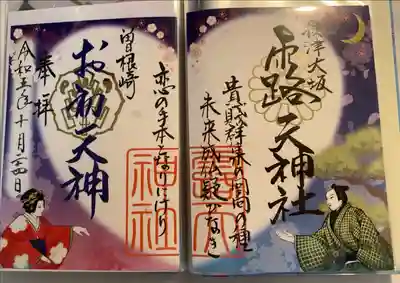 摂津大坂
露天神社
貴賎群集の回向の種
未来成仏疑がなき
恋の手本となりにけり
曽根崎
お初天神
奉拝
令和五年十月二四日
露天
神社